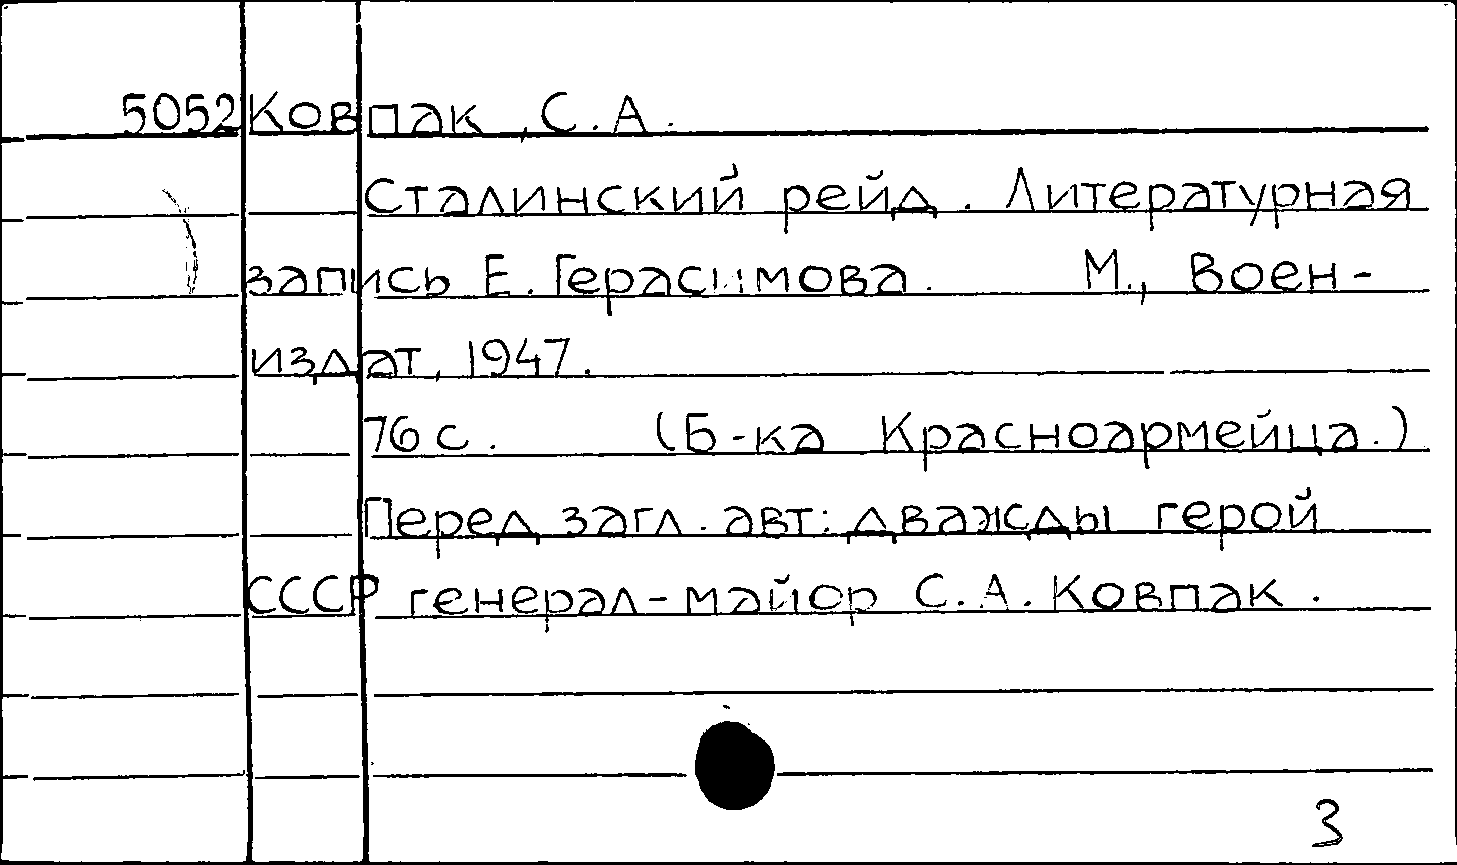 5052 Ковпак, С.А.
Сталинский рейд. Литературная
запись Е. Герасимова. М., Воен-
издат, 1947.
76 с. (Б-ка Красноармейца.)
Перед загл. авт: дважды герой
СССР генерал-майор С.А. Ковпак.
3